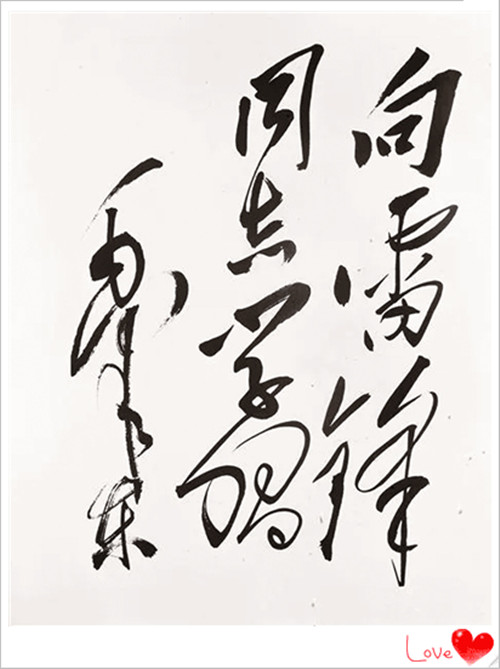 向雷锋
同志学习
毛泽东
Love